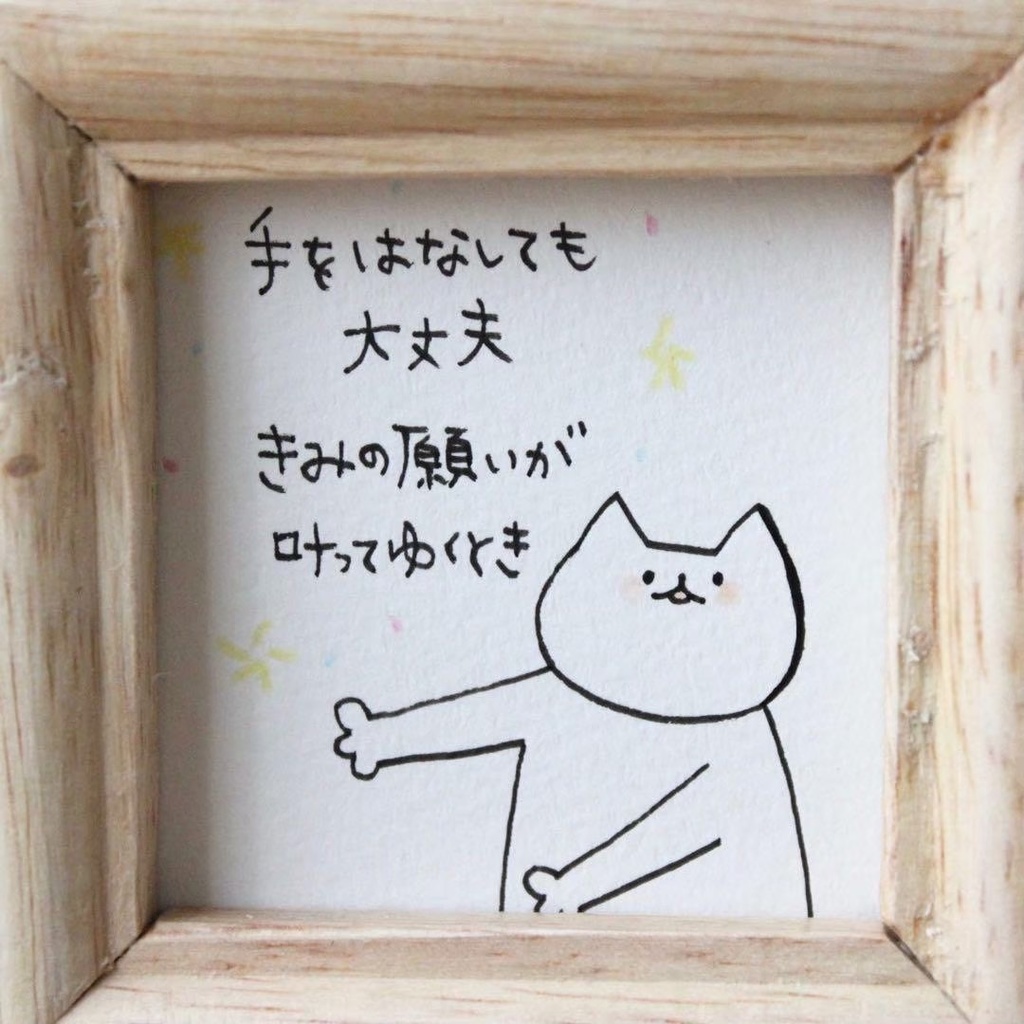 手をはなしても
大丈夫
きみの願いが
叶ってゆくとき